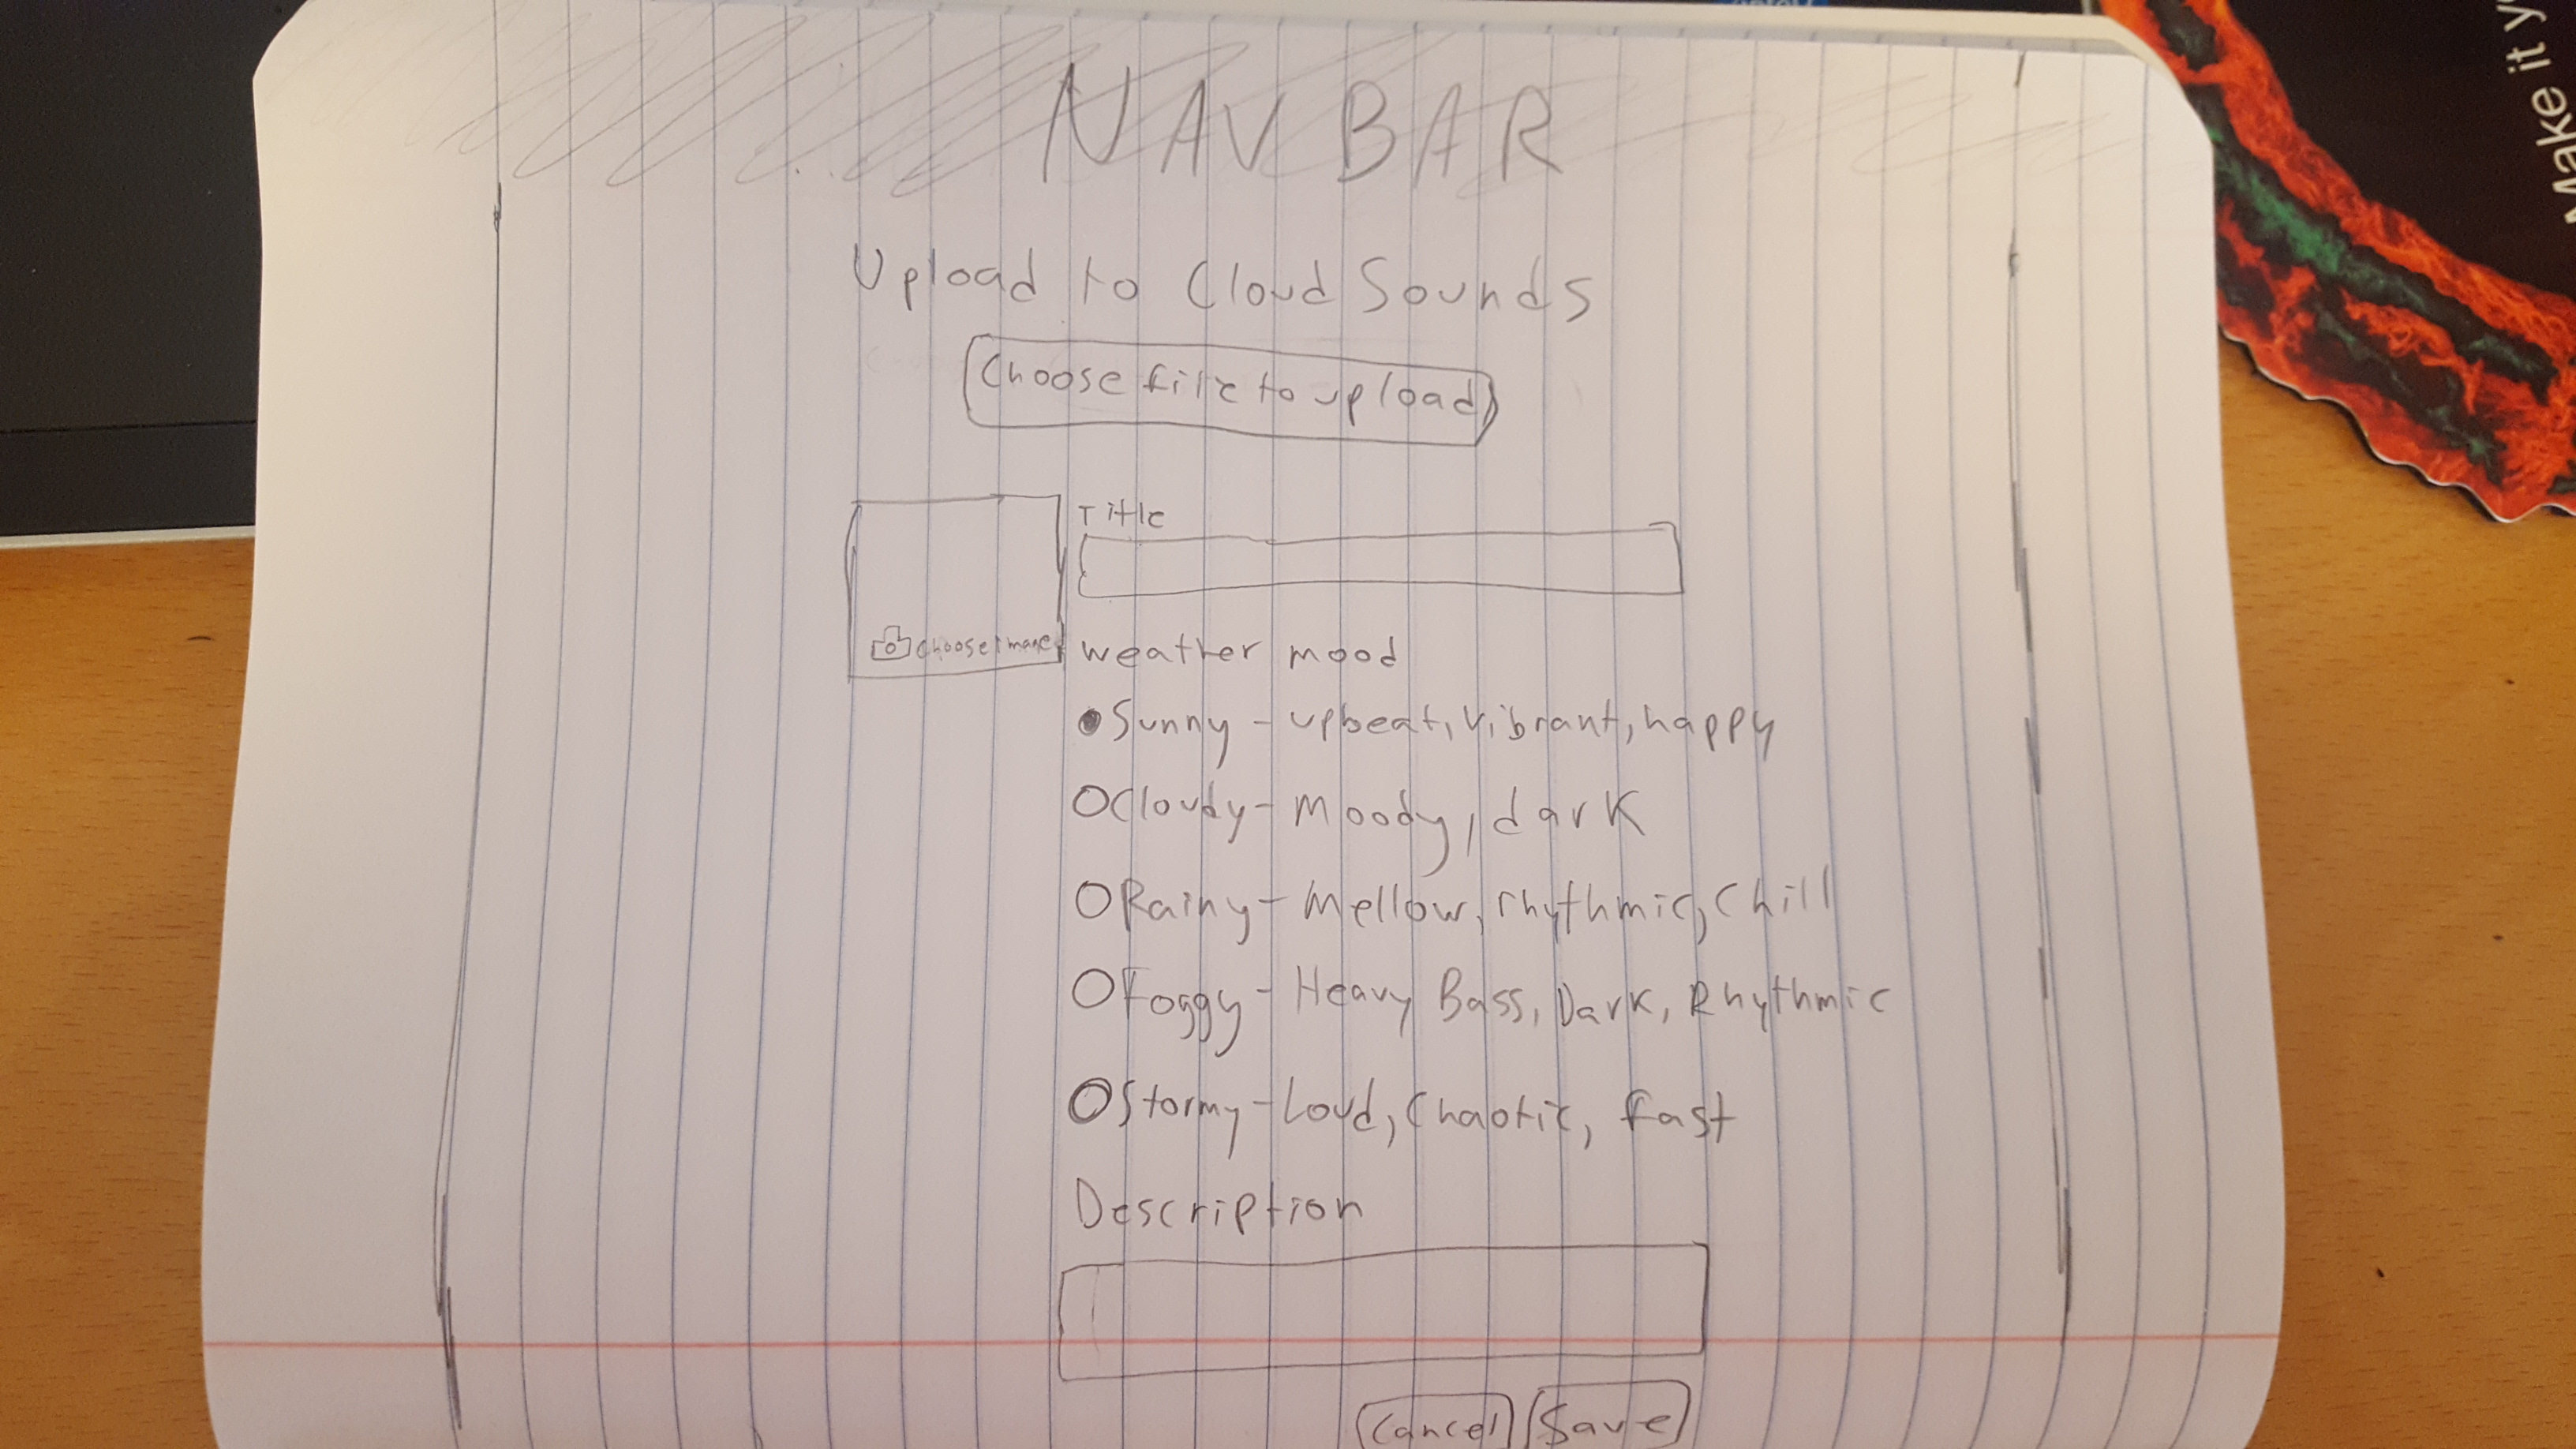 NAV BAR
Upload to Cloud Sounds
Choose file to upload
Title
Choose Image
weather mood
Sunny - upbeat, vibrant, happy
Cloudy - Moody, dark
Rainy - Mellow, rhythmic, chill
Foggy - Heavy Bass, Dark, Rhythmic
Stormy - Loud, Chaotic, fast
Description
Cancel Save
Make it